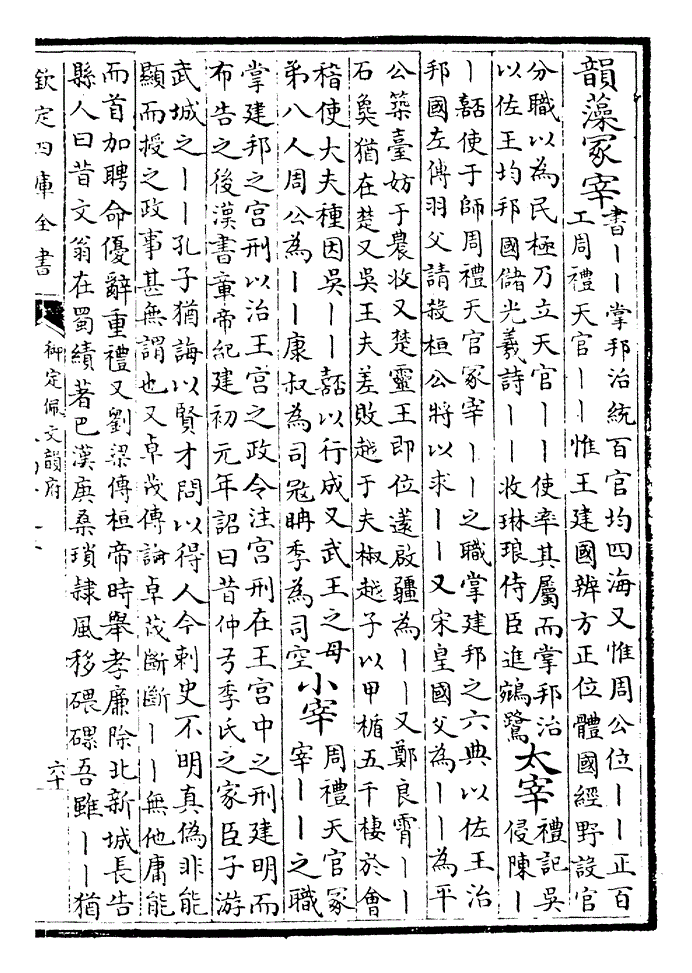 韻藻冡宰書丨丨掌邦治統百官均四海又惟周公位丨丨正百
工周禮天官丨丨惟王建國辨方正位體國經野設官
分職以為民極乃立天官丨丨使率其屬而掌邦治
以佐王均邦國儲光羲詩丨丨收琳琅侍臣進鵷鷺
太宰禮記吳
侵陳丨
丨嚭使于師周禮天官冡宰丨丨之職掌建邦之六典以佐王治
邦國左傳羽父請殺桓公將以求丨丨又宋皇國父為丨丨為平
公築臺妨于農收又楚靈王即位薳啟疆為丨丨又鄭良霄丨丨
石㚟猶在楚又吳王夫差敗越于夫椒越子以甲楯五千棲於會
稽使大夫種因吳丨丨嚭以行成又武王之母
弟八人周公為丨丨康叔為司冦聃季為司空
小宰周禮天官冡
宰丨丨之職
掌建邦之宫刑以治王宫之政令注宫刑在王宫中之刑建明而
布告之後漢書章帝紀建初元年詔曰昔仲弓季氏之家臣子游
武城之丨丨孔子猶誨以賢才問以得人今刺史不明真偽非能
顯而授之政事甚無謂也又卓茂傳論卓茂斷斷丨丨無他庸能
而首加聘命優辭重禮又劉梁傳桓帝時舉孝廉除北新城長告
縣人曰昔文翁在蜀績著巴漢庚桑瑣隸風移碨磥吾雖丨丨猶
欽定四庫全書
御定佩文韻府
六十